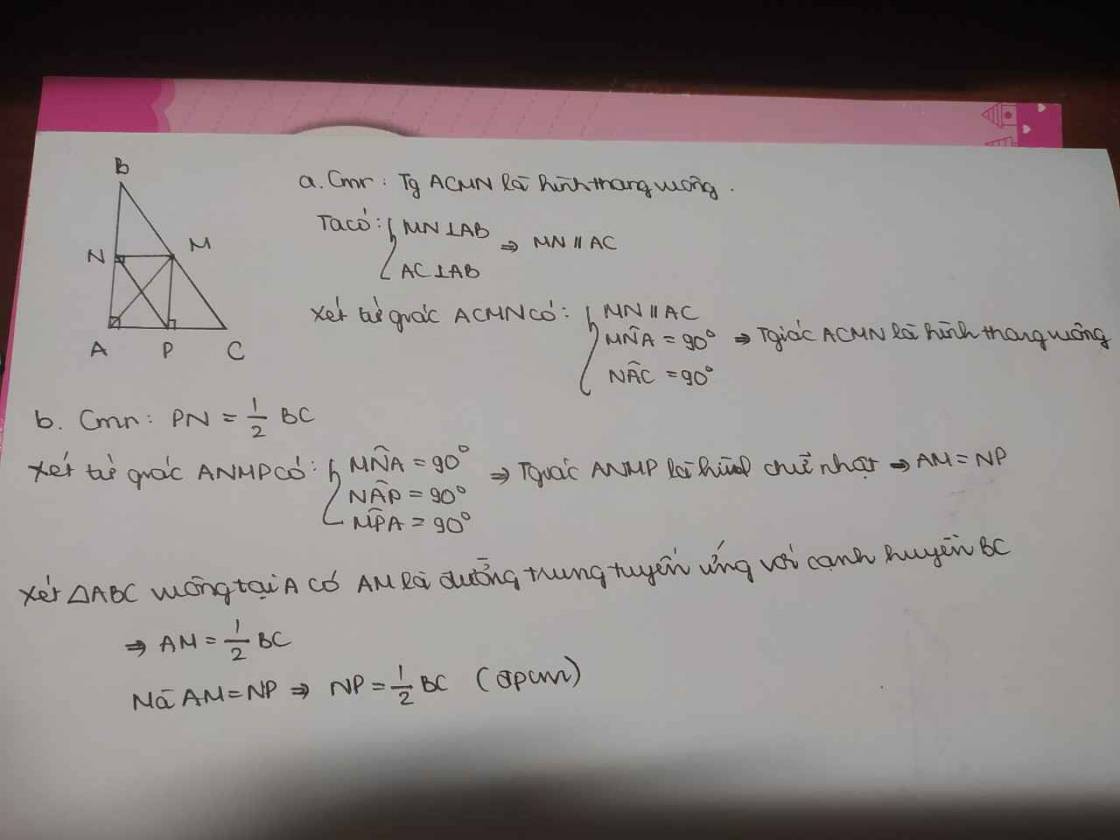 B
N
M
A
P
C
a. Cmr: Tg ACMN là hình thang vuông.
Ta có: { MN ⊥ AB
AC ⊥ AB
⇒ MN // AC
Xét tứ giác ACMN có: { MN // AC
MN̂A = 90°
NÂC = 90°
⇒ Tgiác ACMN là hình thang vuông
b. Cmr: PN = 1/2 BC
Xét tứ giác ANMP có: { MN̂A = 90°
NÂP = 90°
MP̂A = 90°
⇒ Tgiác ANMP là hình chữ nhật ⇒ AM = NP
Xét △ABC vuông tại A có AM là đường trung tuyến ứng với cạnh huyền BC
⇒ AM = 1/2 BC
Mà AM = NP ⇒ NP = 1/2 BC (đpcm)